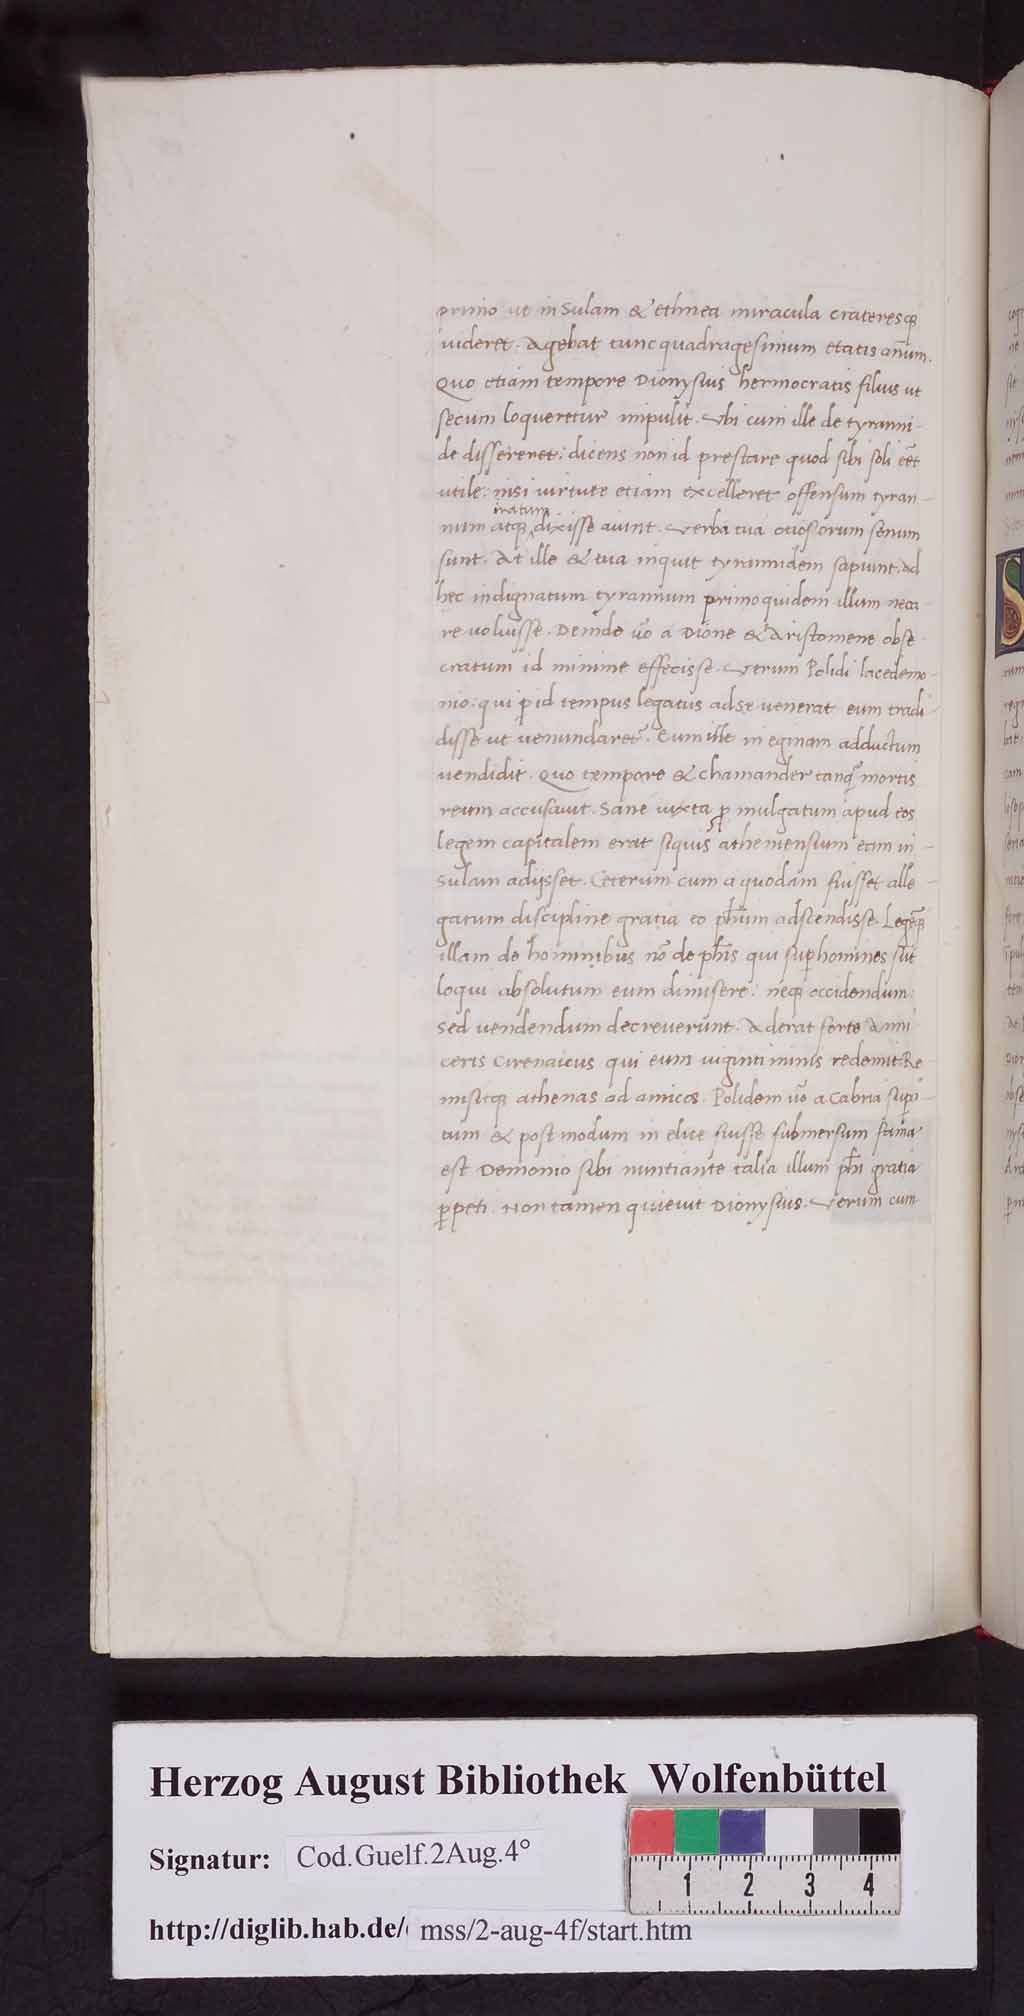 primo ut in Sulam & ethnea miracula crateresq̃
uideret. Agebat tunc quadragesimum etatis an̄um.
Quo etiam tempore Dionysius hermocratis filius ut
secum loqueretur impulit. Vbi cum ille de tyranni-
de dissereret: dicens non id prestare quod sibi soli eēt
utile: nisi uirtute etiam excelleret offensum tyran-
iratum
num atq̃ dixisse aiunt. Verba tua otiosorum senum
sunt. At ille & tua inquit tyrannidem sapiunt. ad
hec indignatum tyrannum primo quidem illum neca-
re uoluisse. Deinde ũo a Dione & Aristomene obse-
cratum id minime effecisse. Verum Polidi lacedemo-
nio: qui ꝑ id tempus legatus ad se uenerat eum tradi-
disse ut uenundaret᷑. Eum ille in eginam adductum
uendidit. Quo tempore & chamander tanq̃ mortis
reum accusauit. Sane iuxta ꝓmulgatum apud eos
legem capitalem erat siquis atheniensium eam in-
sulam adijsset. Ceterum cum a quodam fuisset alle-
gatum discipline gratia eo ph̄um adscendisse. Legēq̃
illam de hominibus nō de ph̄is qui suꝑ homines sūt
loqui absolutum eum dimisere: neq̃ occidendum:
sed uendendum decreuerunt. Aderat forte Anni-
ceris Cirenaicus qui eum uiginti minis redemit. Re-
misitq̃ athenas ad amicos. Polidem ũo a Cabria suꝑa-
tum & post modum in elice fuisse submersum fama
est Demonio sibi nuntiante talia illum ph̄i gratia
ꝑpeti. Non tamen quieuit Dionysius. Verum cum
Herzog August Bibliothek Wolfenbüttel
Signatur: Cod.Guelf.2Aug.4°
1 2 3 4
http://diglib.hab.de/ mss/2-aug-4f/start.htm